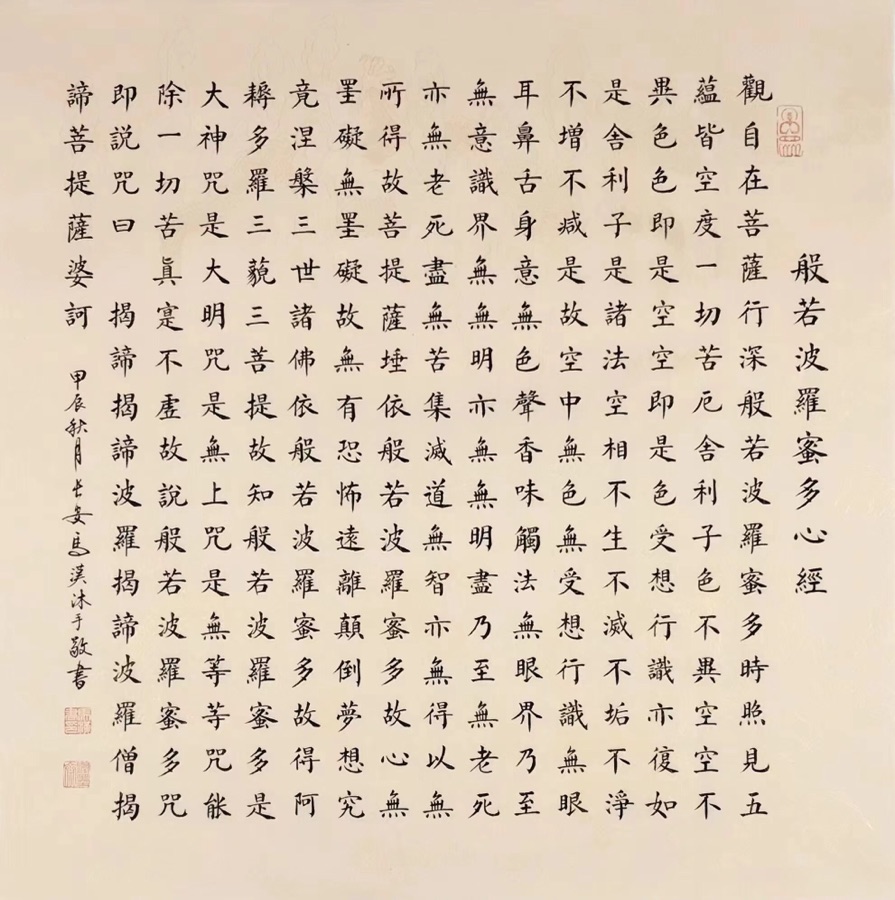 般若波羅蜜多心經
觀自在菩薩行深般若波羅蜜多時照見五
蘊皆空度一切苦厄舍利子色不異空空不
異色色即是空空即是色受想行識亦復如
是舍利子是諸法空相不生不滅不垢不淨
不增不減是故空中無色無受想行識無眼
耳鼻舌身意無色聲香味觸法無眼界乃至
無意識界無無明亦無無明盡乃至無老死
亦無老死盡無苦集滅道無智亦無得以無
所得故菩提薩埵依般若波羅蜜多故心無
罣礙無罣礙故無有恐怖遠離顛倒夢想究
竟涅槃三世諸佛依般若波羅蜜多故得阿
耨多羅三藐三菩提故知般若波羅蜜多是
大神咒是大明咒是無上咒是無等等咒能
除一切苦真實不虛故說般若波羅蜜多咒
即說咒曰 揭諦揭諦波羅揭諦波羅僧揭
諦菩提薩婆訶
甲辰秋月長安馬漢沐手敬書